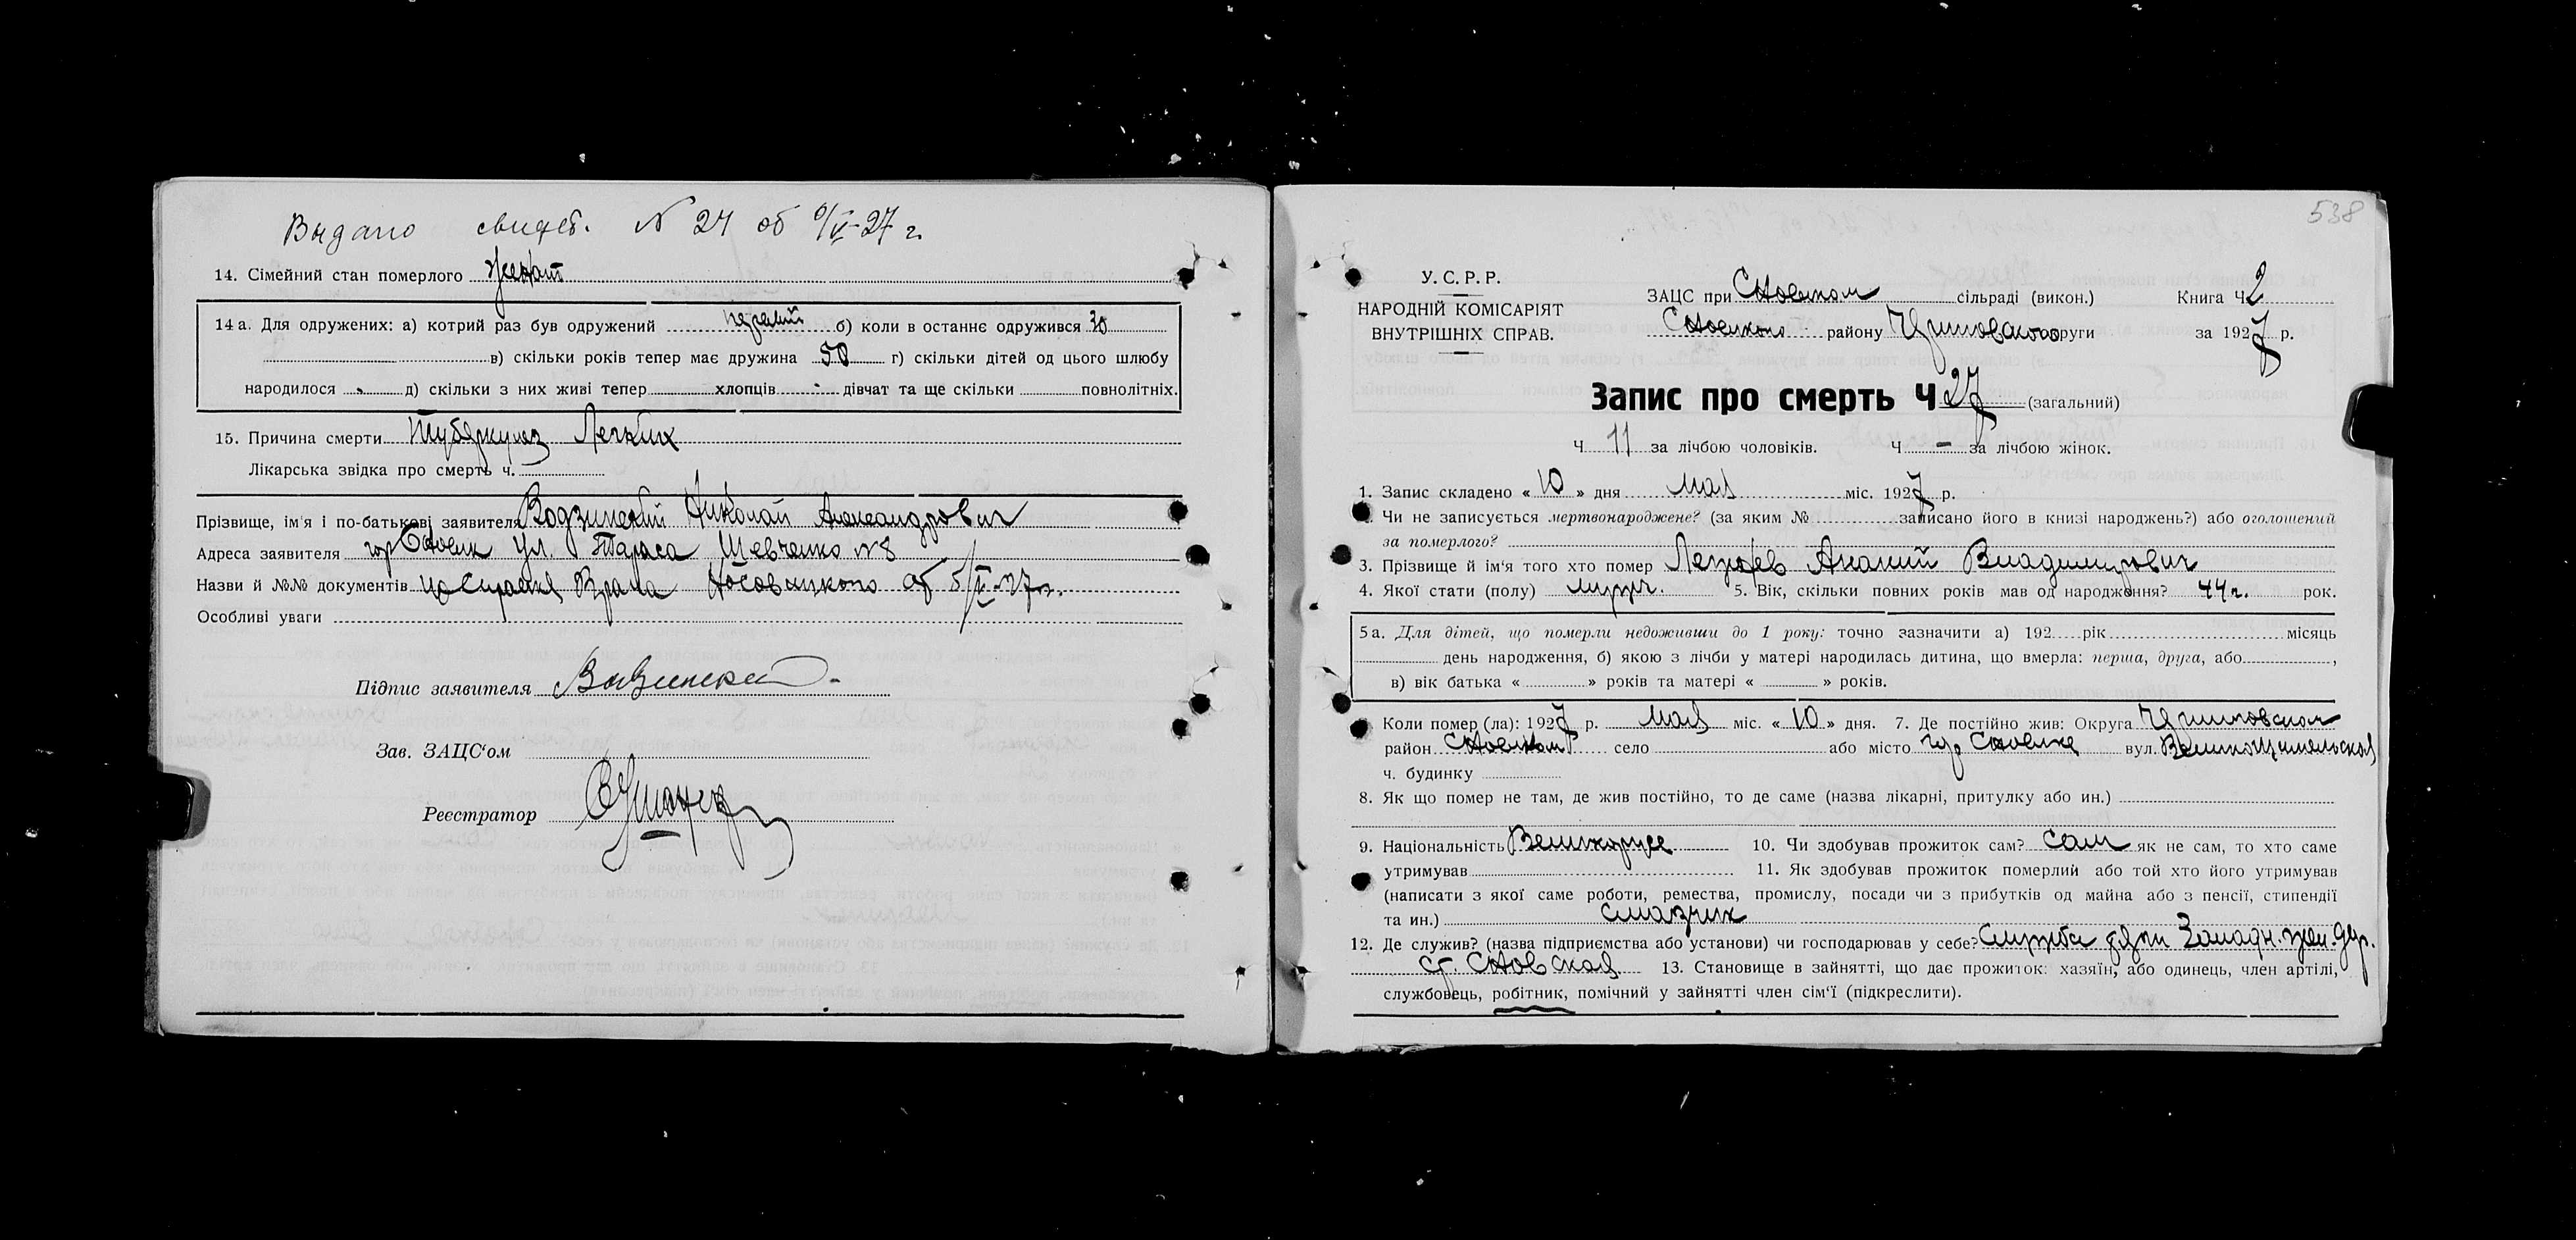 Выдано свидет. N 24 об 6/V-27 г.
14. Сімейний стан померлого женат
14 а. Для одружених: а) котрий раз був одружений первый б) коли в останнє одружився 30
в) скільки років тепер має дружина 50 г) скільки дітей од цього шлюбу
народилося - д) скільки з них живі тепер хлопців - дівчат та ще скільки повнолітніх.
15. Причина смерти Туберкулез Легких
Лікарська звідка про смерть ч.
Прізвище, ім'я і по-батькові заявителя Водзинский Николай Александрович
Адреса заявителя гор Сновск ул. Тараса Шевченко № 8
Назви й №№ документів Врача об 5/V-27 г.
Особливі уваги
Підпис заявителя
Зав. ЗАЦС'ом
Реєстратор
538
У. С. Р. Р.
НАРОДНІЙ КОМІСАРІЯТ
ВНУТРІШНІХ СПРАВ.
ЗАЦС при Сновском сільраді (викон.) Книга Ч 2
Сновского району округи за 1927 р.
Запис про смерть Ч 27 (загальний)
Ч 11 за лічбою чоловіків. Ч - за лічбою жінок.
1. Запис складено « 10 » дня мая міс. 1927 р.
Чи не записується мертвонароджене? (за яким № записано його в книзі народжень?) або оголошений
за померлого?
3. Прізвище й ім'я того хто помер Ананий Владимирович
4. Якої стати (полу) мужч. 5. Вік, скільки повних років мав од народження? 44 г. рок.
5 а. Для дітей, що померли недоживши до 1 року: точно зазначити а) 192 рік місяць
день народження, б) якою з лічби у матері народилась дитина, що вмерла: перша, друга, або ,
в) вік батька « » років та матері « » років.
Коли помер (ла): 1927 р. мая міс. « 10 » дня. 7. Де постійно жив: Округа
район Сновском село або місто гор Сновске вул.
ч. будинку
8. Як що помер не там, де жив постійно, то де саме (назва лікарні, притулку або ин.)
9. Національність Великорусс 10. Чи здобував прожиток сам? сам як не сам, то хто саме
утримував 11. Як здобував прожиток померлий або той хто його утримував
(написати з якої саме роботи, ремества, промислу, посади чи з прибутків од майна або з пенсії, стипендії
та ин.) смазчик
12. Де служив? (назва підприємства або установи) чи господарював у себе? Служба тяги Западн. жел. дор.
ст. Сновская 13. Становище в зайнятті, що дає прожиток: хазяїн, або одинець, член артілі,
службовець, робітник, помічний у зайнятті член сім'ї (підкреслити).